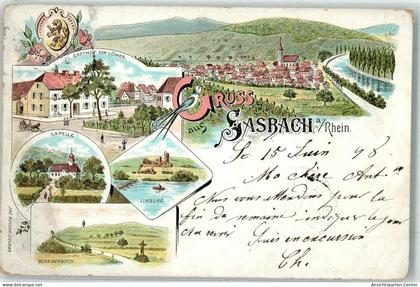 GASTHOF ZUM LÖWEN
GRUSS
aus
SASBACH a/Rhein.
KAPELLE
LIMBURG
SCHEIBENBUCK
Le 15 Juin 98
Ma chère
Nous vous attendons pour la
fin de semaine indiquez le jour
suis en excursion
Ch.